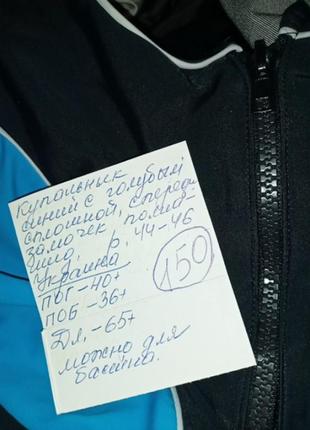 Купальник
синий с голубым
сплошной, спереди
замочек, полиа-
мид, р. 44-46
Украина
ПОГ-40+
ПОБ-36+
Дл.-65+
можно для
басейна.
150